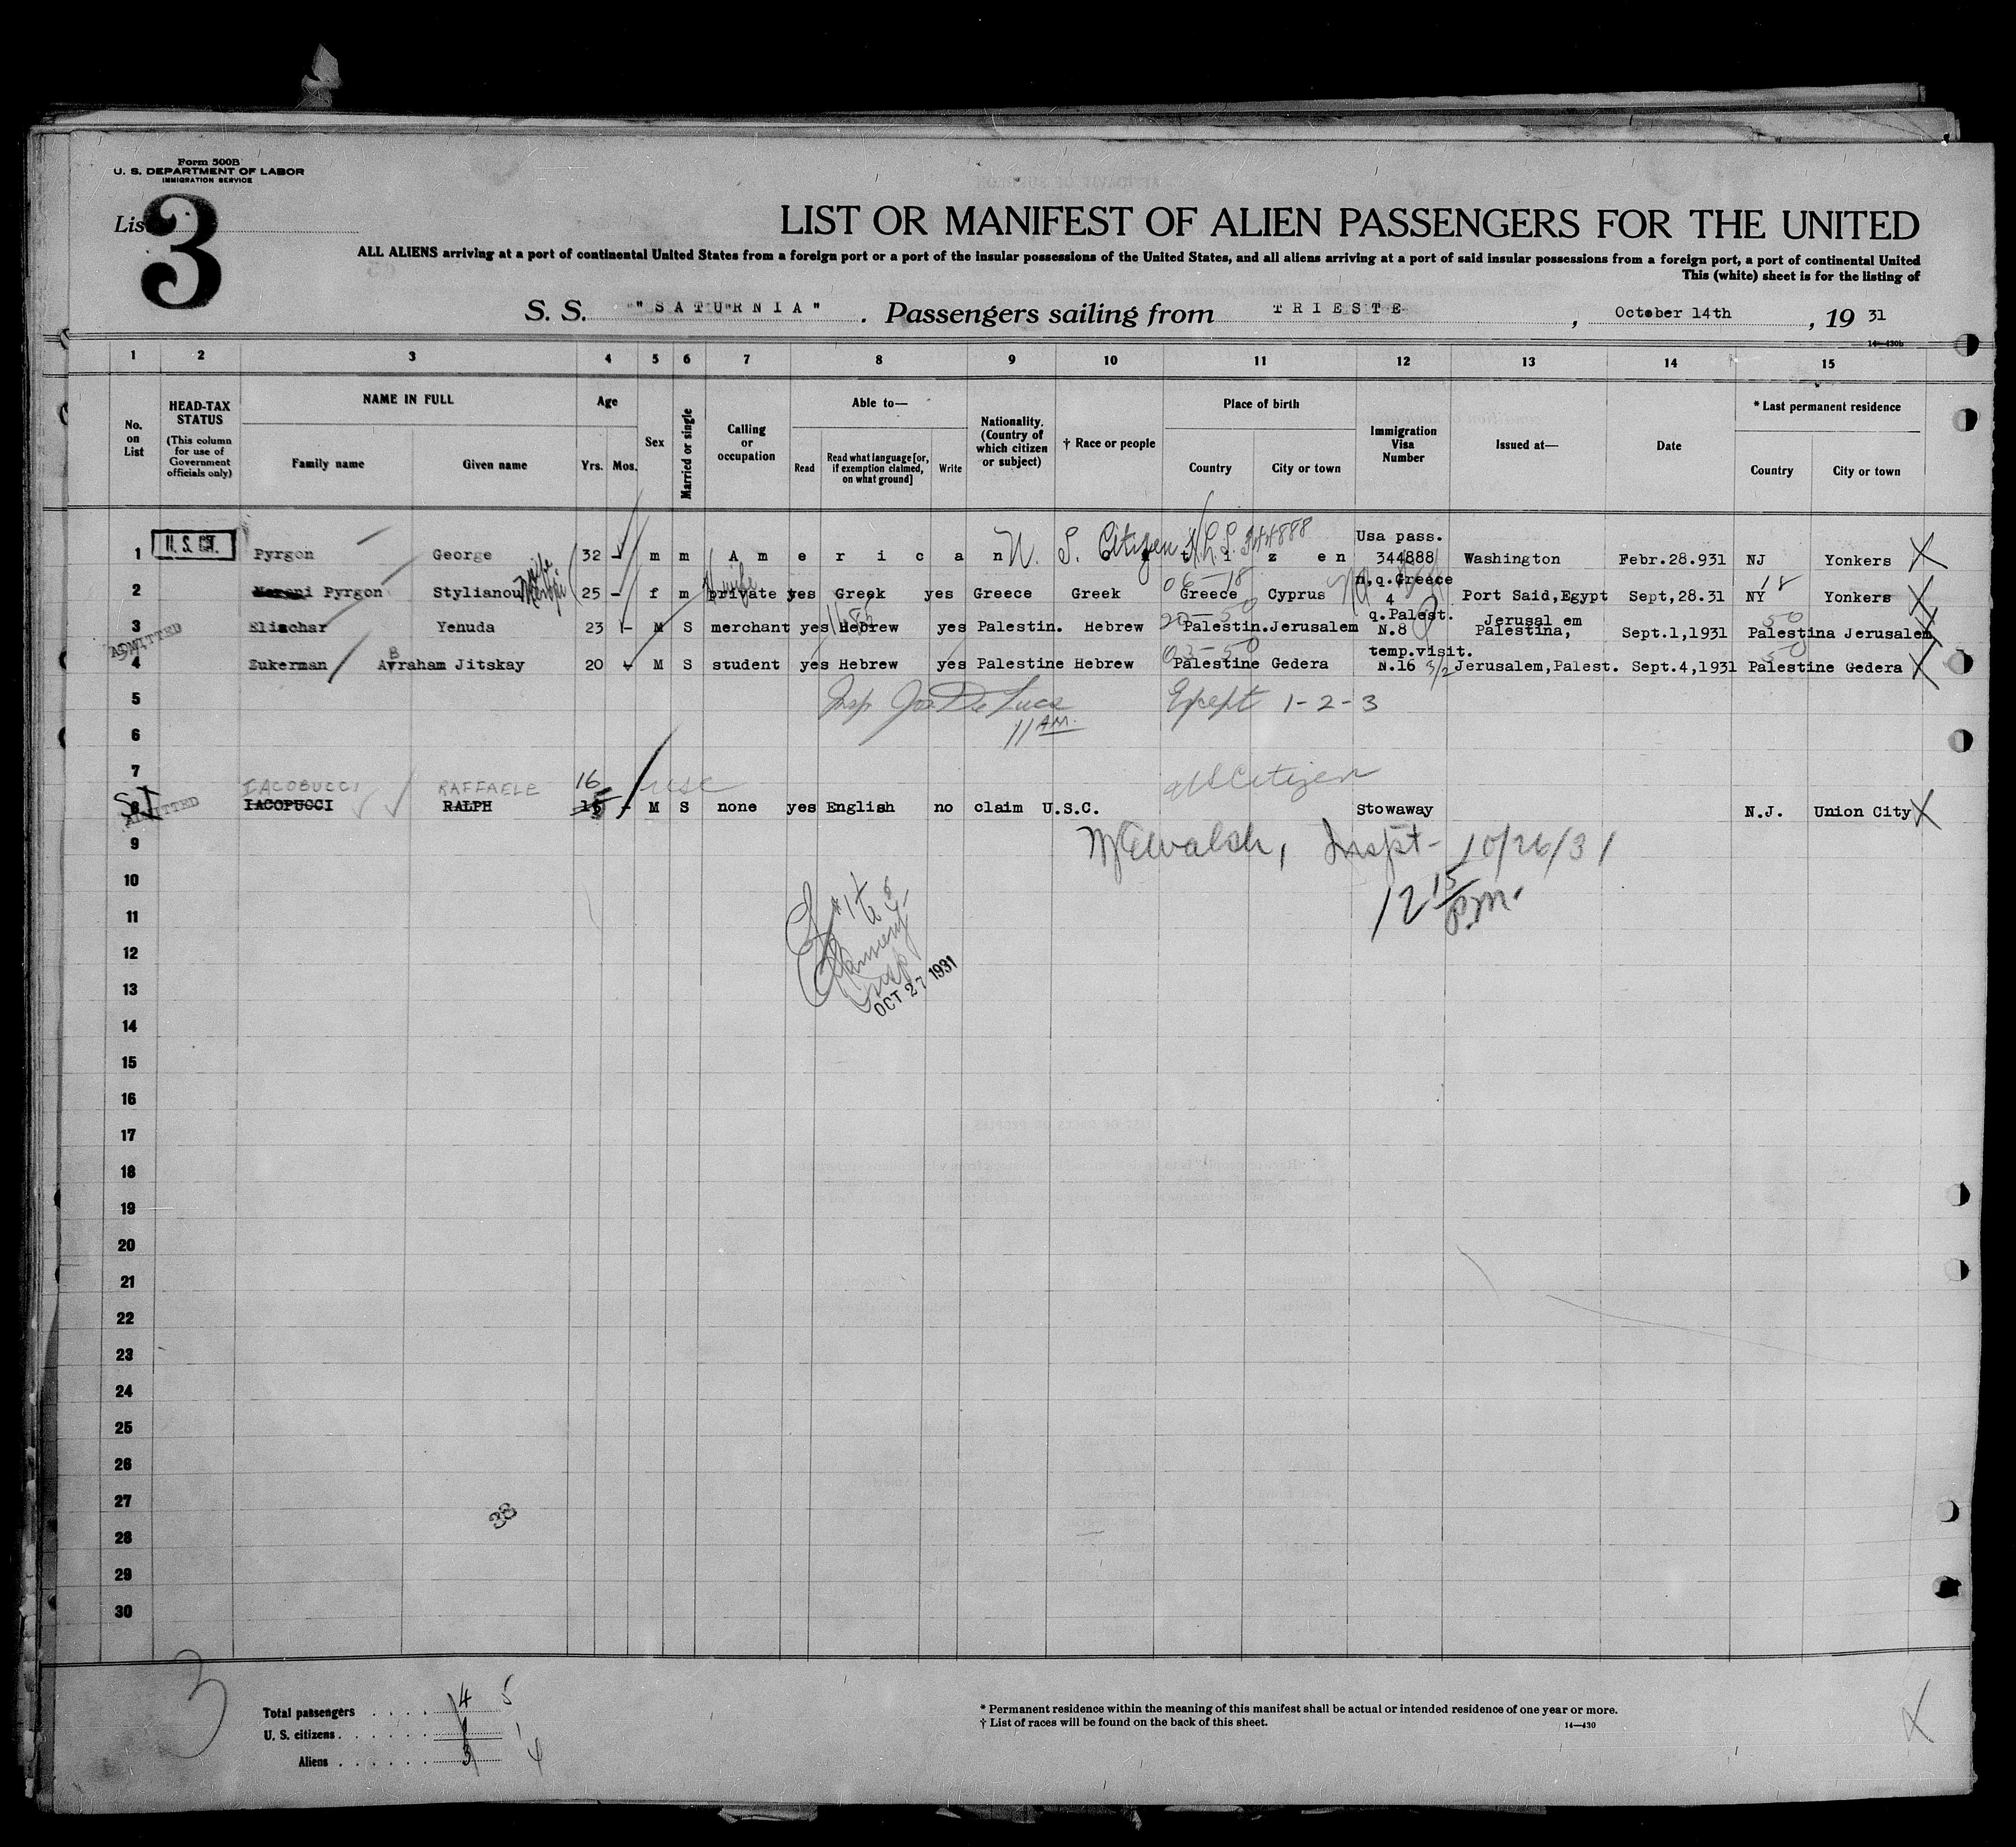 Form 500B
U. S. DEPARTMENT OF LABOR
IMMIGRATION SERVICE
Lis 3
LIST OR MANIFEST OF ALIEN PASSENGERS FOR THE UNITED
ALL ALIENS arriving at a port of continental United States from a foreign port or a port of the insular possessions of the United States, and all aliens arriving at a port of said insular possessions from a foreign port, a port of continental United
This (white) sheet is for the listing of
S. S. "SATURNIA". Passengers sailing from TRIESTE, October 14th, 19 31
14—430b
1 2 3 4 5 6 7 8 9 10 11 12 13 14 15
No. on List
HEAD-TAX STATUS (This column for use of Government officials only)
NAME IN FULL
Family name Given name
Age
Yrs. Mos.
Sex
Married or single
Calling or occupation
Able to—
Read Read what language [or, if exemption claimed, on what ground] Write
Nationality. (Country of which citizen or subject)
† Race or people
Place of birth
Country City or town
Immigration Visa Number
Issued at—
Date
* Last permanent residence
Country City or town
U. S. Citizen 344888 Usa pass.
1 U. S. CIT. Pyrgon George 32 - m m American citizen 344888 Washington Febr.28.931 NJ Yonkers X
wife H wife 06-18 n,q.Greece 18
2 Pyrgon Stylianou 25 - f m private yes Greek yes Greece Greek Greece Cyprus 4 Port Said,Egypt Sept,28.31 NY Yonkers X
50 q.Palest. Jerusal em 50
3 Eliachar Yenuda 23 - M S merchant yes Hebrew yes Palestin. Hebrew Palestin.Jerusalem N.8 Palestina, Sept.1,1931 Palestina Jerusalem X
ADMITTED B 03-50 temp.visit. 50
4 Zukerman Avraham Jitskay 20 - M S student yes Hebrew yes Palestine Hebrew Palestine Gedera N.16 3/2 Jerusalem,Palest. Sept.4,1931 Palestine Gedera X
5 Insp Jos De Luca Except 1-2-3
6 11 AM.
7
IACOBUCCI RAFFAELE 16 usc US Citizen
8 SI ADMITTED IACOPUCCI RALPH 15 - M S none yes English no claim U.S.C. Stowaway N.J. Union City X
9 Walsh, Inspt- 10/26/31
10
12 15 P.M.
11
12
13
OCT 27 1931
14
15
16
17
18
19
20
21
22
23
24
25
26
27
38
28
29
30
3
Total passengers 4 5
U. S. citizens 1 1
Aliens 3 4
* Permanent residence within the meaning of this manifest shall be actual or intended residence of one year or more.
† List of races will be found on the back of this sheet.
14—430
X